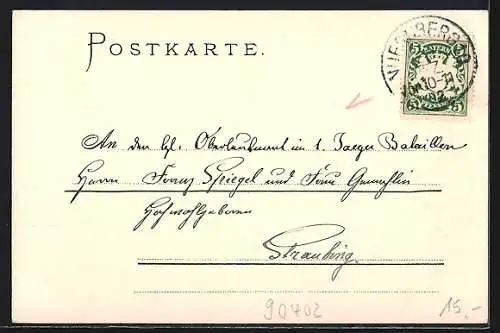 POSTKARTE.
NUERNBERG
BAYERN
5 5
10-11
5 PFENNIG 5
An den kgl. Oberleutnant im 1. Jaeger Bataillon
Herrn Franz Spiegel und Frau Gemahlin
Hochwohlgeboren
Straubing.
90702
15,-